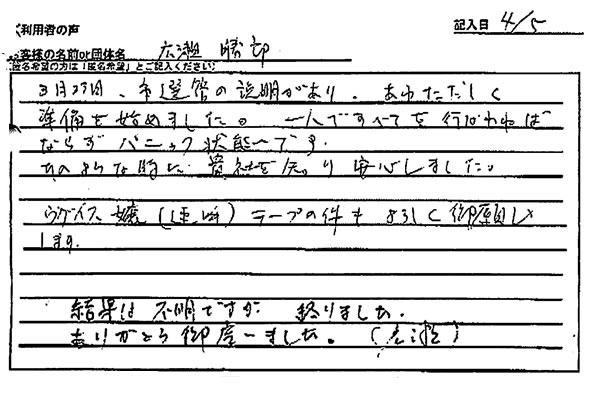 ご利用者の声
記入日 4/5
お客様の名前or団体名 広瀬 勝郎
(匿名希望の方は「匿名希望」とご記入ください)
3月27日、市選管の説明があり、あわただしく
準備を始めました。一人ですべてを行なわねば
ならずパニック状態です。
そのような時に、貴社を知り安心しました。
ウグイス嬢(連呼)テープの件もよろしく御願し
します。
結果は不明ですが 終りました。
ありがとう御座いました。(広瀬)